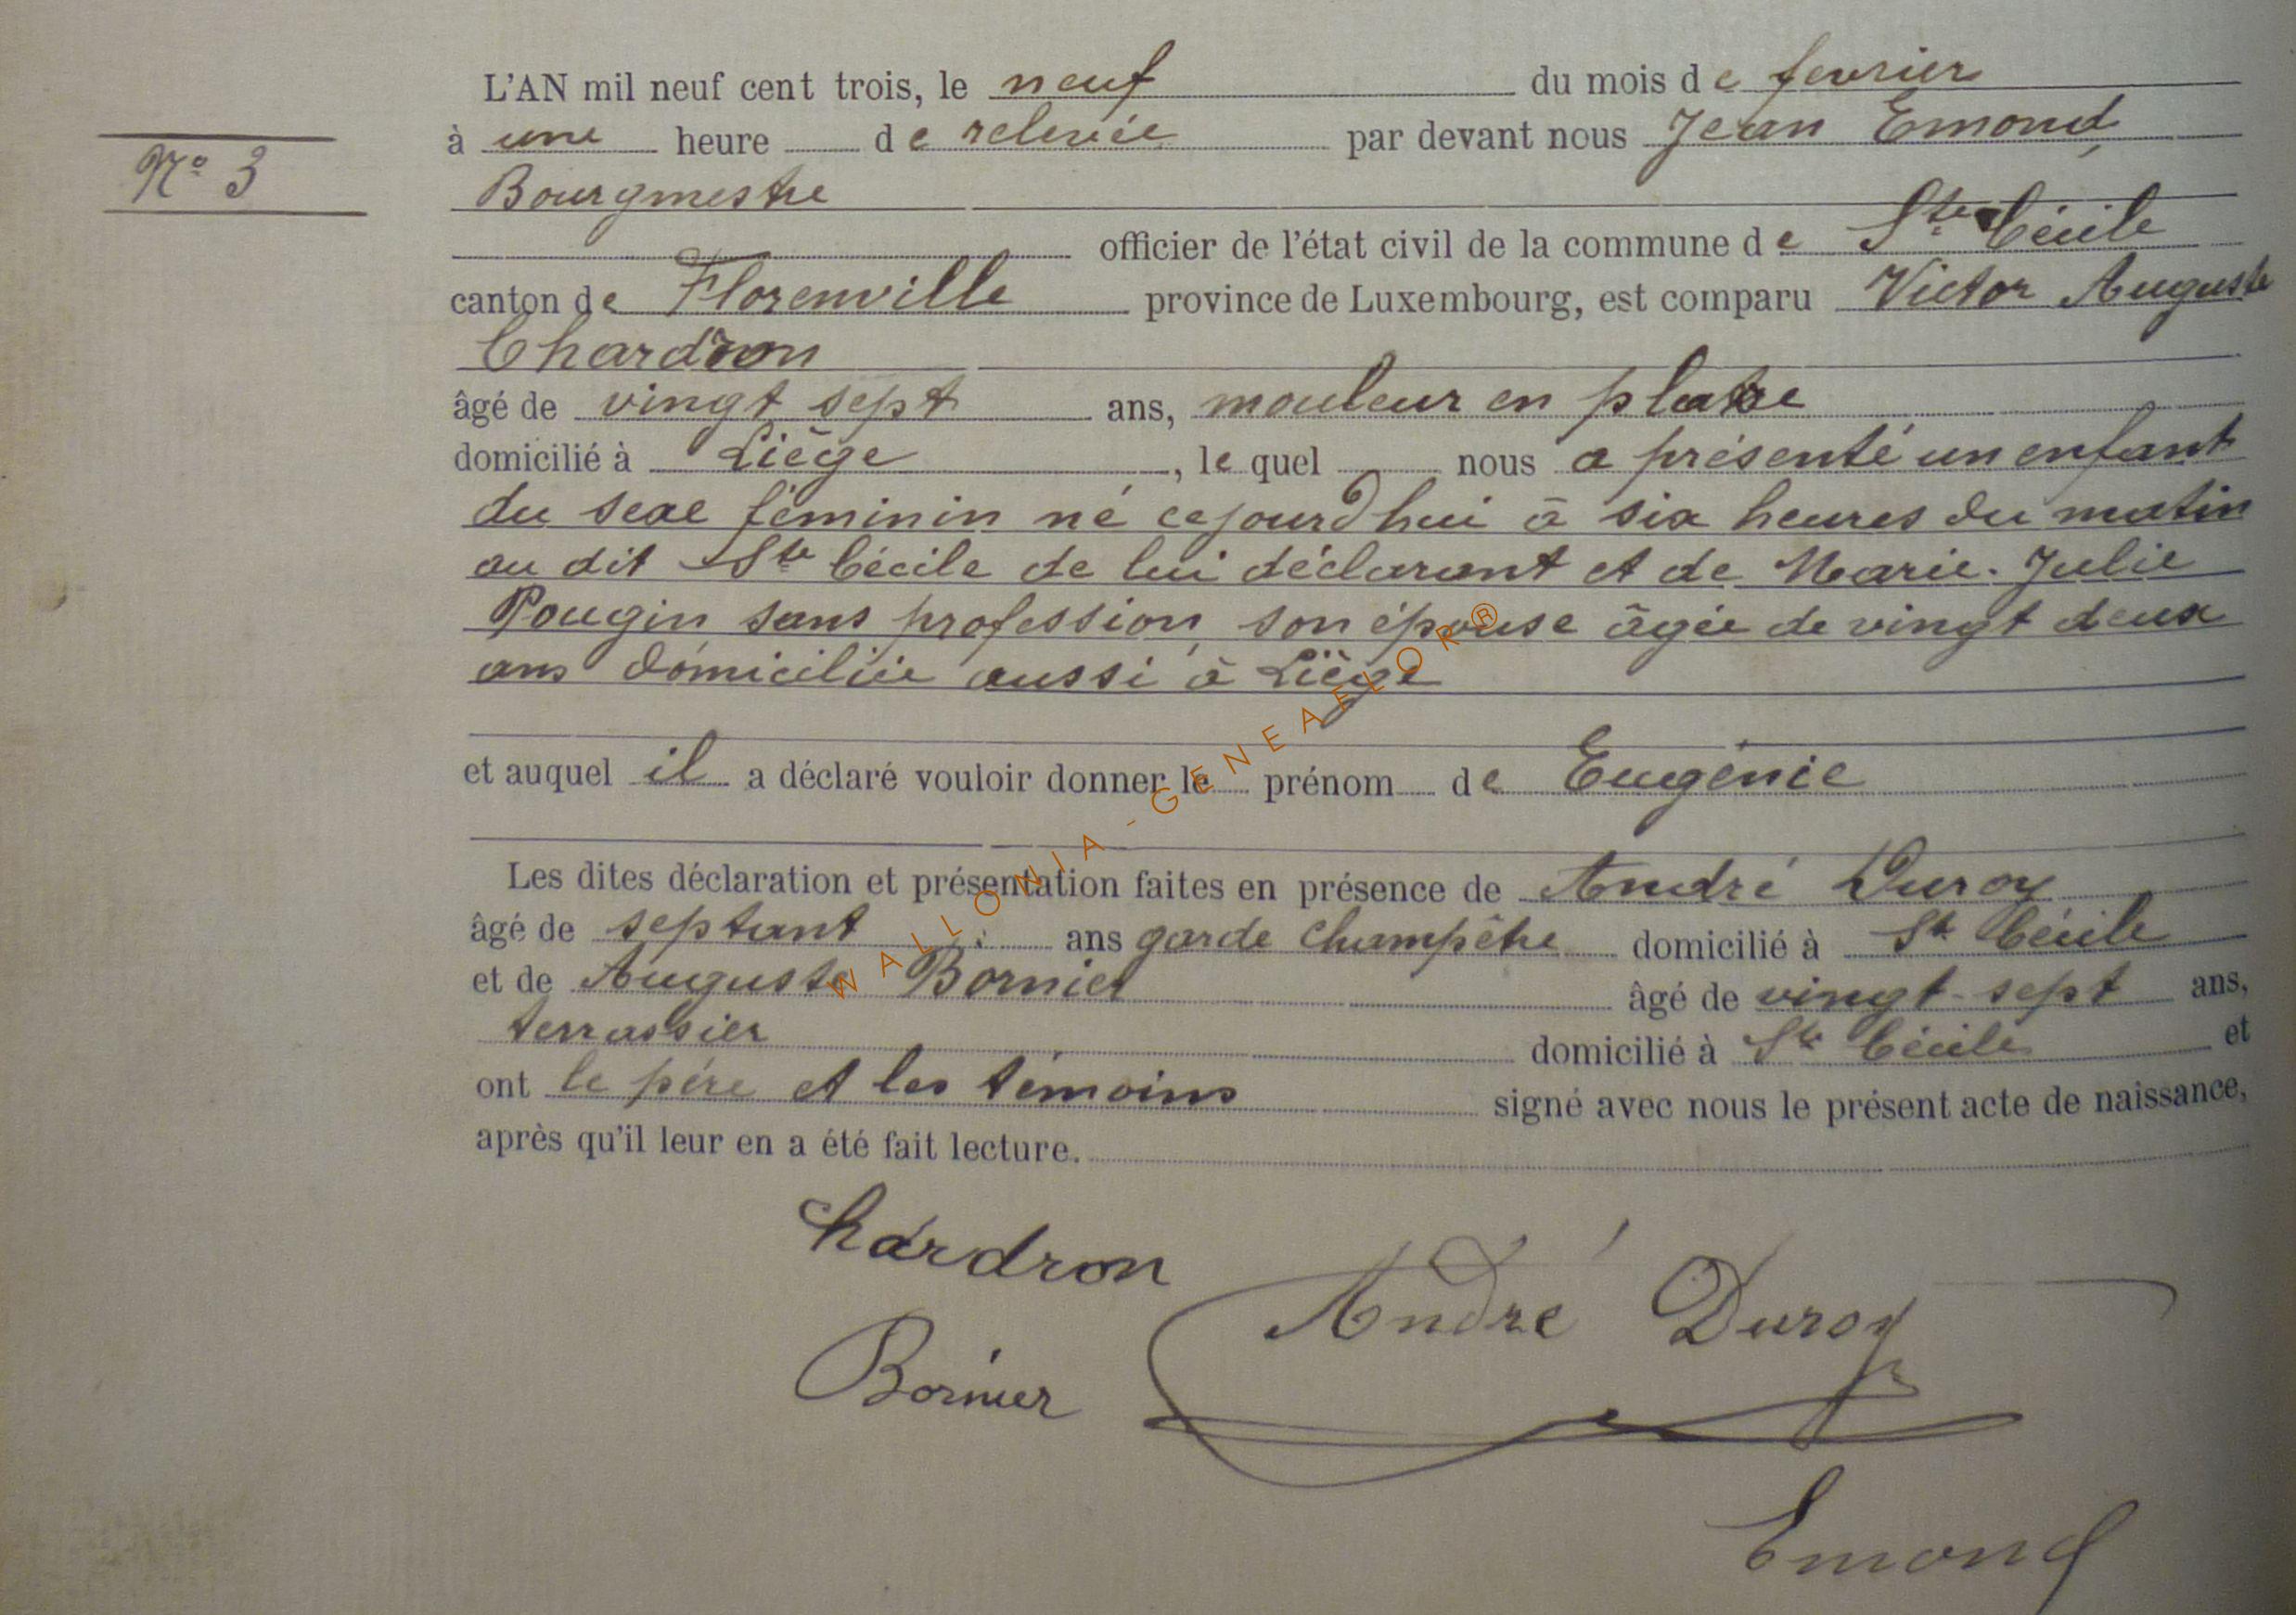 L'AN mil neuf cent trois, le neuf du mois de fevrier
à une heure de relevée par devant nous Jean Emond,
N° 3
Bourgmestre
officier de l'état civil de la commune de Ste Cécile
canton de Florenville province de Luxembourg, est comparu Victor Auguste
Chardron
âgé de vingt sept ans, mouleur en platre
domicilié à Liège, le quel nous a présenté un enfant
du sexe féminin né cejourd'hui à six heures du matin
au dit Ste Cécile de lui déclarant et de Marie-Julie
Pougin sans profession, son épouse âgée de vingt deux
ans domiciliée aussi à Liège
et auquel il a déclaré vouloir donner le prénom de Eugénie
Les dites déclaration et présentation faites en présence de André Duroy
âgé de septant ans garde champêtre domicilié à Ste Cécile
et de Auguste Bornier âgé de vingt-sept ans,
terrassier domicilié à Ste Cécile et
ont le père et les témoins signé avec nous le présent acte de naissance,
après qu'il leur en a été fait lecture.
Chardron
André Duroy
Bornier
Emond
WALLONIA - GENEAFLOR®